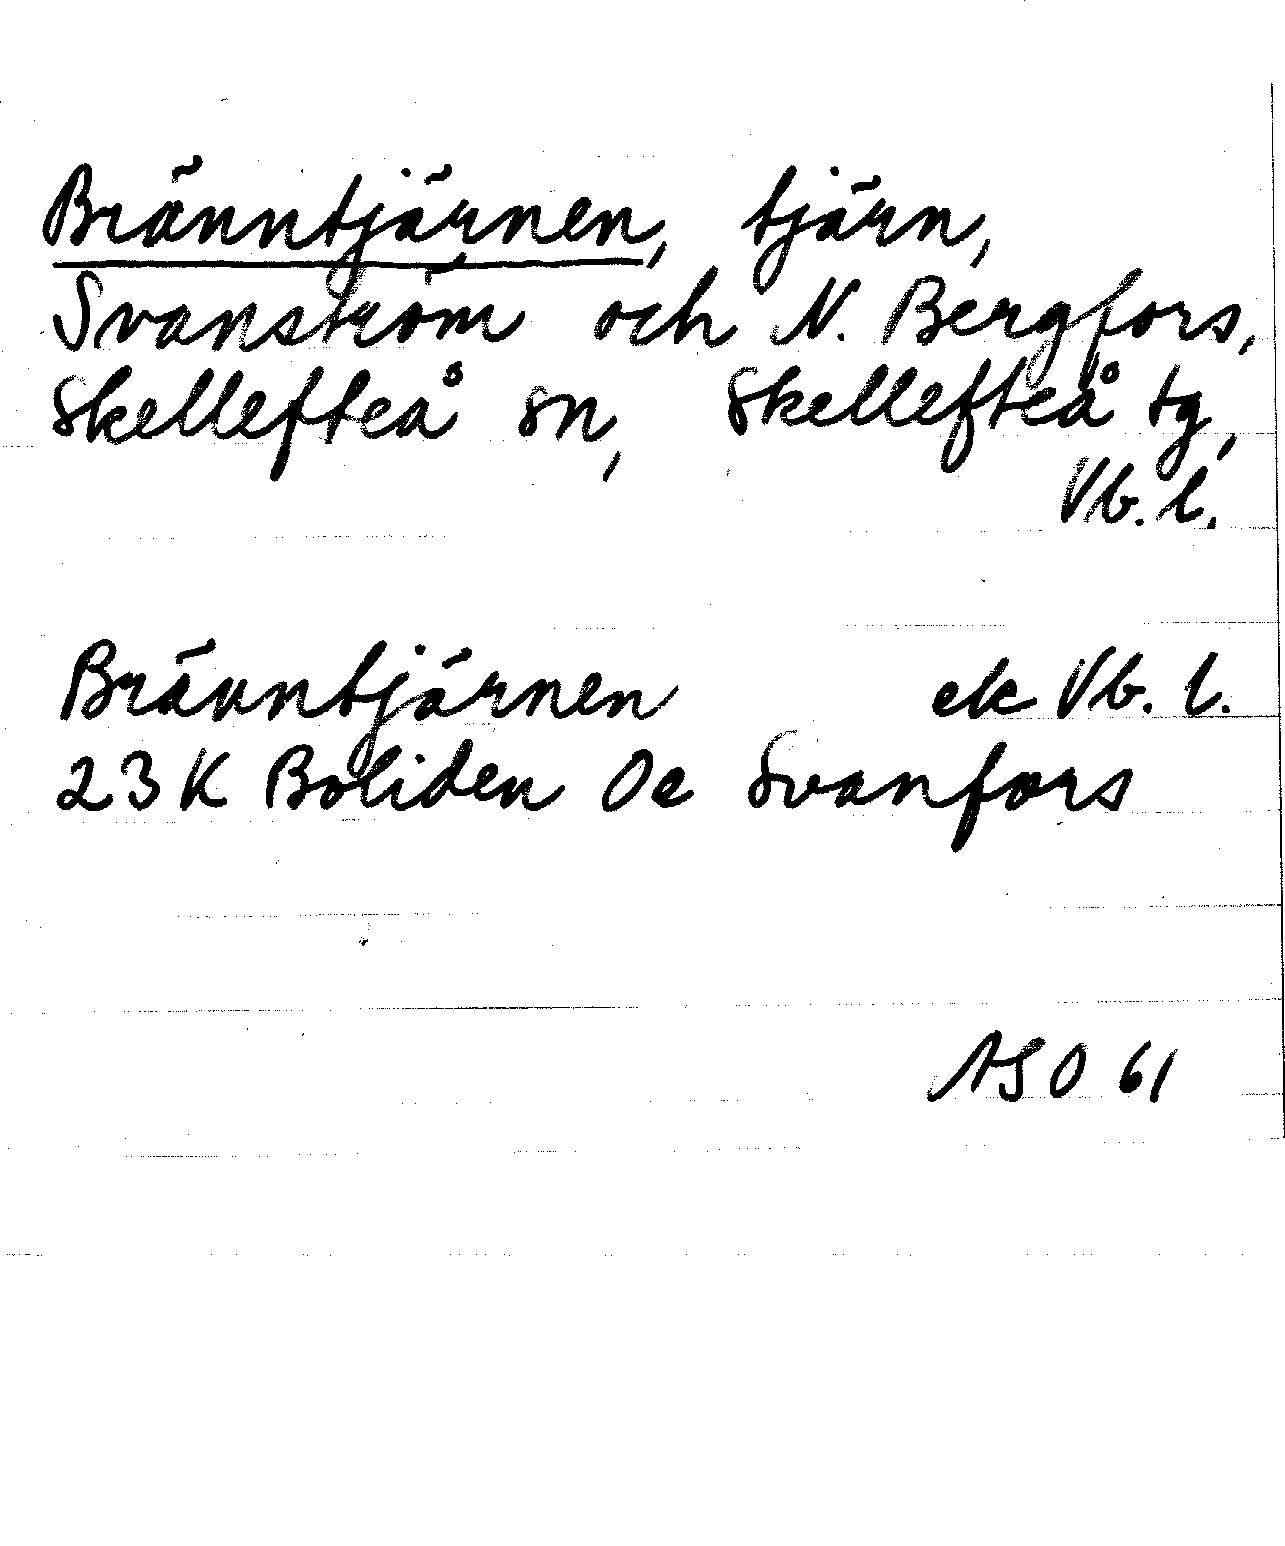 Bränntjärnen, tjärn,
Svanström och N. Bergfors,
Skellefteå sn, Skellefteå tg,
Vb. l.
Bränntjärnen ek Vb. l.
23 K Boliden 0e Svanfors
ASO 61